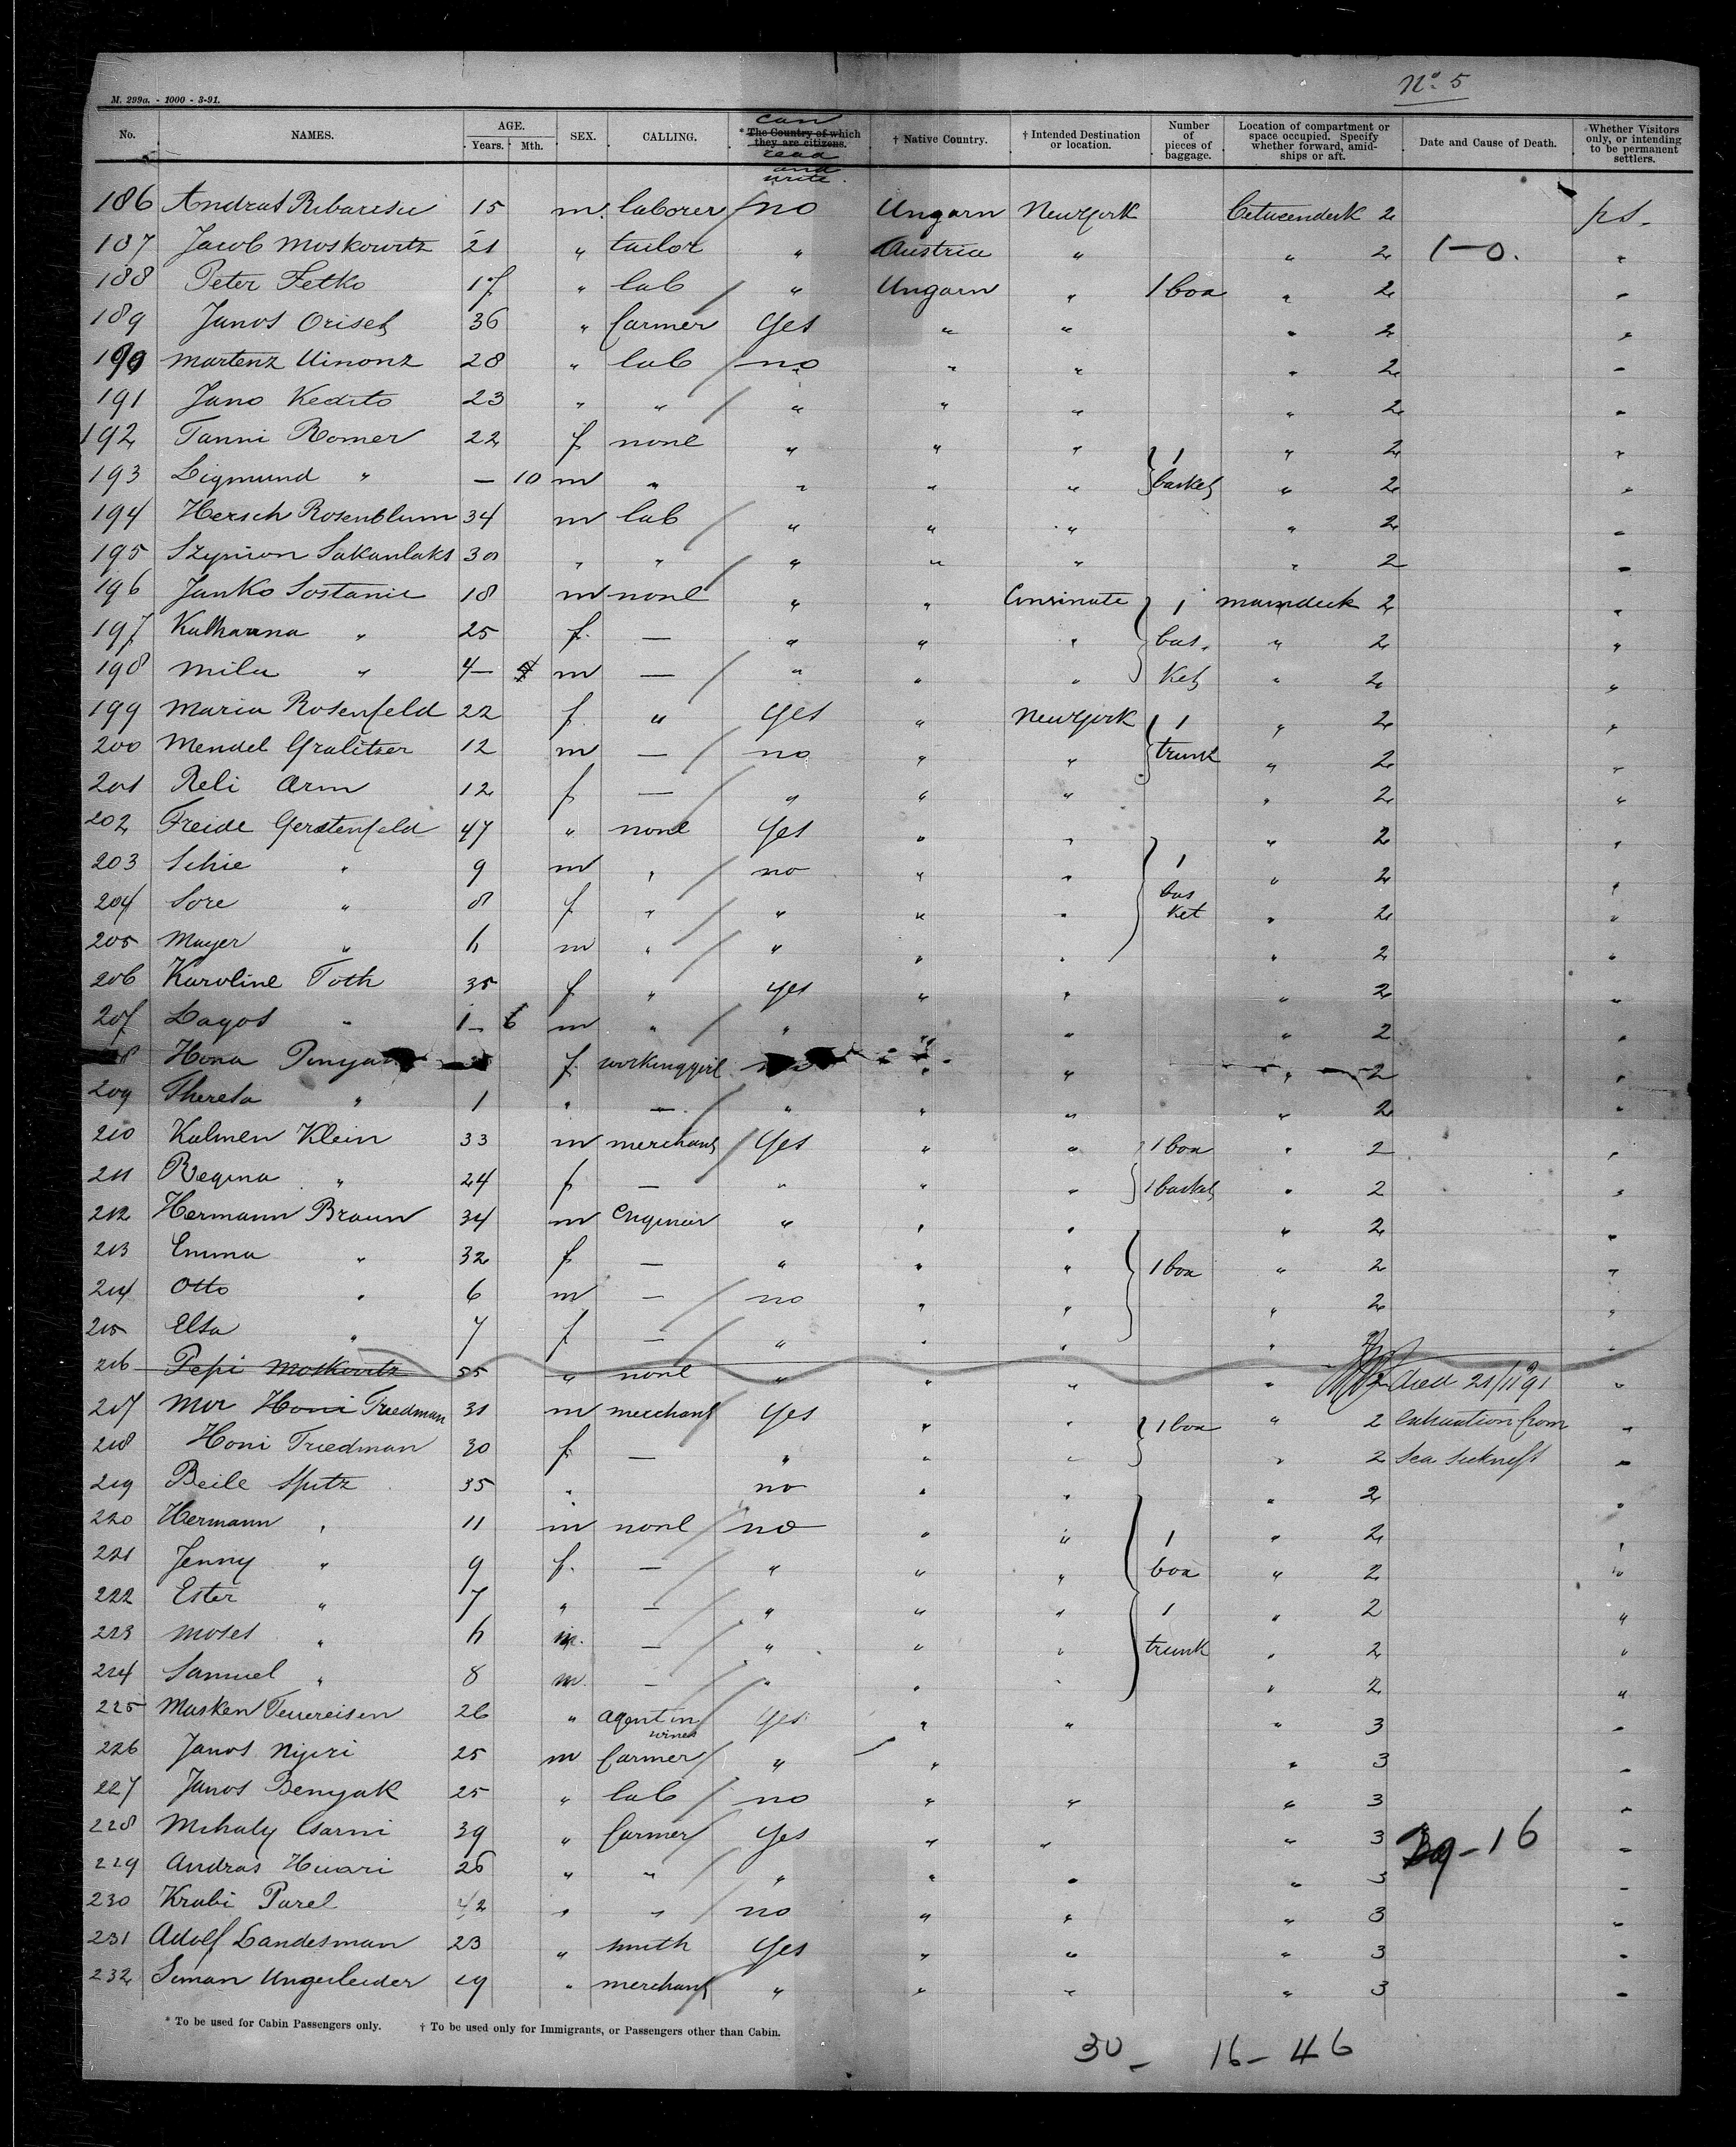 Nº 5
M. 299a. - 1000 - 3-91.
No. NAMES. AGE. Years. Mth. SEX. CALLING. * The Country of which they are citizens. can read and write. † Native Country. † Intended Destination or location. Number of pieces of baggage. Location of compartment or space occupied. Specify whether forward, amidships or aft. Date and Cause of Death. Whether Visitors only, or intending to be permanent settlers.
186 Andras 15 m. laborer no Ungarn New York 2 ps.
187 Jacob Moskowitz 21 " tailor " Austria " " 2 1-0. "
188 Peter Fetko 17 " lab " Ungarn " 1 box " 2 "
189 Janos 36 " farmer yes " " " 2 "
190 Martenz 28 " lab no " " " 2 "
191 Jano 23 " " " " " " 2 "
192 Fanni Romer 22 f none " " " 1 " 2 "
193 Sigmund " — 10 m " " " " basket " 2 "
194 Hersch Rosenblum 34 m lab " " " " 2 "
195 Szymon 30 " " " " " " 2 "
196 Janko Sostanic 18 m none " " 1 maindeck 2 "
197 Katharina " 25 f. — " " " bas- " 2 "
198 Mila " 4 — m — " " " ket " 2 "
199 Maria Rosenfeld 22 f " yes " New York 1 " 2 "
200 Mendel Gralitzer 12 m — no " " trunk " 2 "
201 Reli Arm 12 f — " " " " 2 "
202 Freide Gerstenfeld 47 " none yes " " " 2 "
203 Schie " 9 m " no " " 1 " 2 "
204 Sore " 8 f " " " " bas ket " 2 "
205 Mayer " h m " " " " " 2 "
206 Karoline Toth 35 f " yes " " " 2 "
207 Lagos " 1 — 6 m " " " " " 2 "
8 f workinggirl " " " 2 "
209 Theresa " 1 " — " " " " 2 "
210 Kalmen Klein 33 m merchant yes " " 1 box " 2 "
211 Regina " 24 f — " " " 1 basket " 2 "
212 Hermann Braun 34 m Engineer " " " " 2 "
213 Emma " 32 f — " " " 1 box " 2 "
214 Otto " 6 m — no " " " 2 "
215 Elsa " 7 f — " " " " "
216 Pepi Moskovitz 55 " none " " " " 2 died 21/11 91 "
217 Mor Honi Friedman 31 m merchant yes " " 1 box " 2 exhaustion from "
218 Honi Friedman 30 f — " " " " 2 Sea sickness "
219 Beile Spitz 35 " no " " " 2 "
220 Hermann " 11 m none no " " 1 " 2 "
221 Jenny " 9 f. — " " " box " 2 "
222 Ester " 7 " — " " " 1 " 2 "
223 Moses " h m. — " " " trunk " 2 "
224 Samuel " 8 m. — " " " " 2 "
225 Feuereisen 26 " agent in wines yes " " " 3 "
226 Janos Nyiri 25 m farmer " " " 3 "
227 Janos Benyak 25 " lab no " " " 3 "
228 Mihaly Csarni 39 " farmer yes " " " 3 29-16 "
229 Andras 26 " " " " " " 3 "
230 Krabi Parel 42 " " no " " " 3 "
231 Adolf Landesman 23 " smith yes " " " 3 "
232 Siman Ungerleider 19 " merchant " " " " 3 "
* To be used for Cabin Passengers only. † To be used only for Immigrants, or Passengers other than Cabin.
30 - 16 - 46